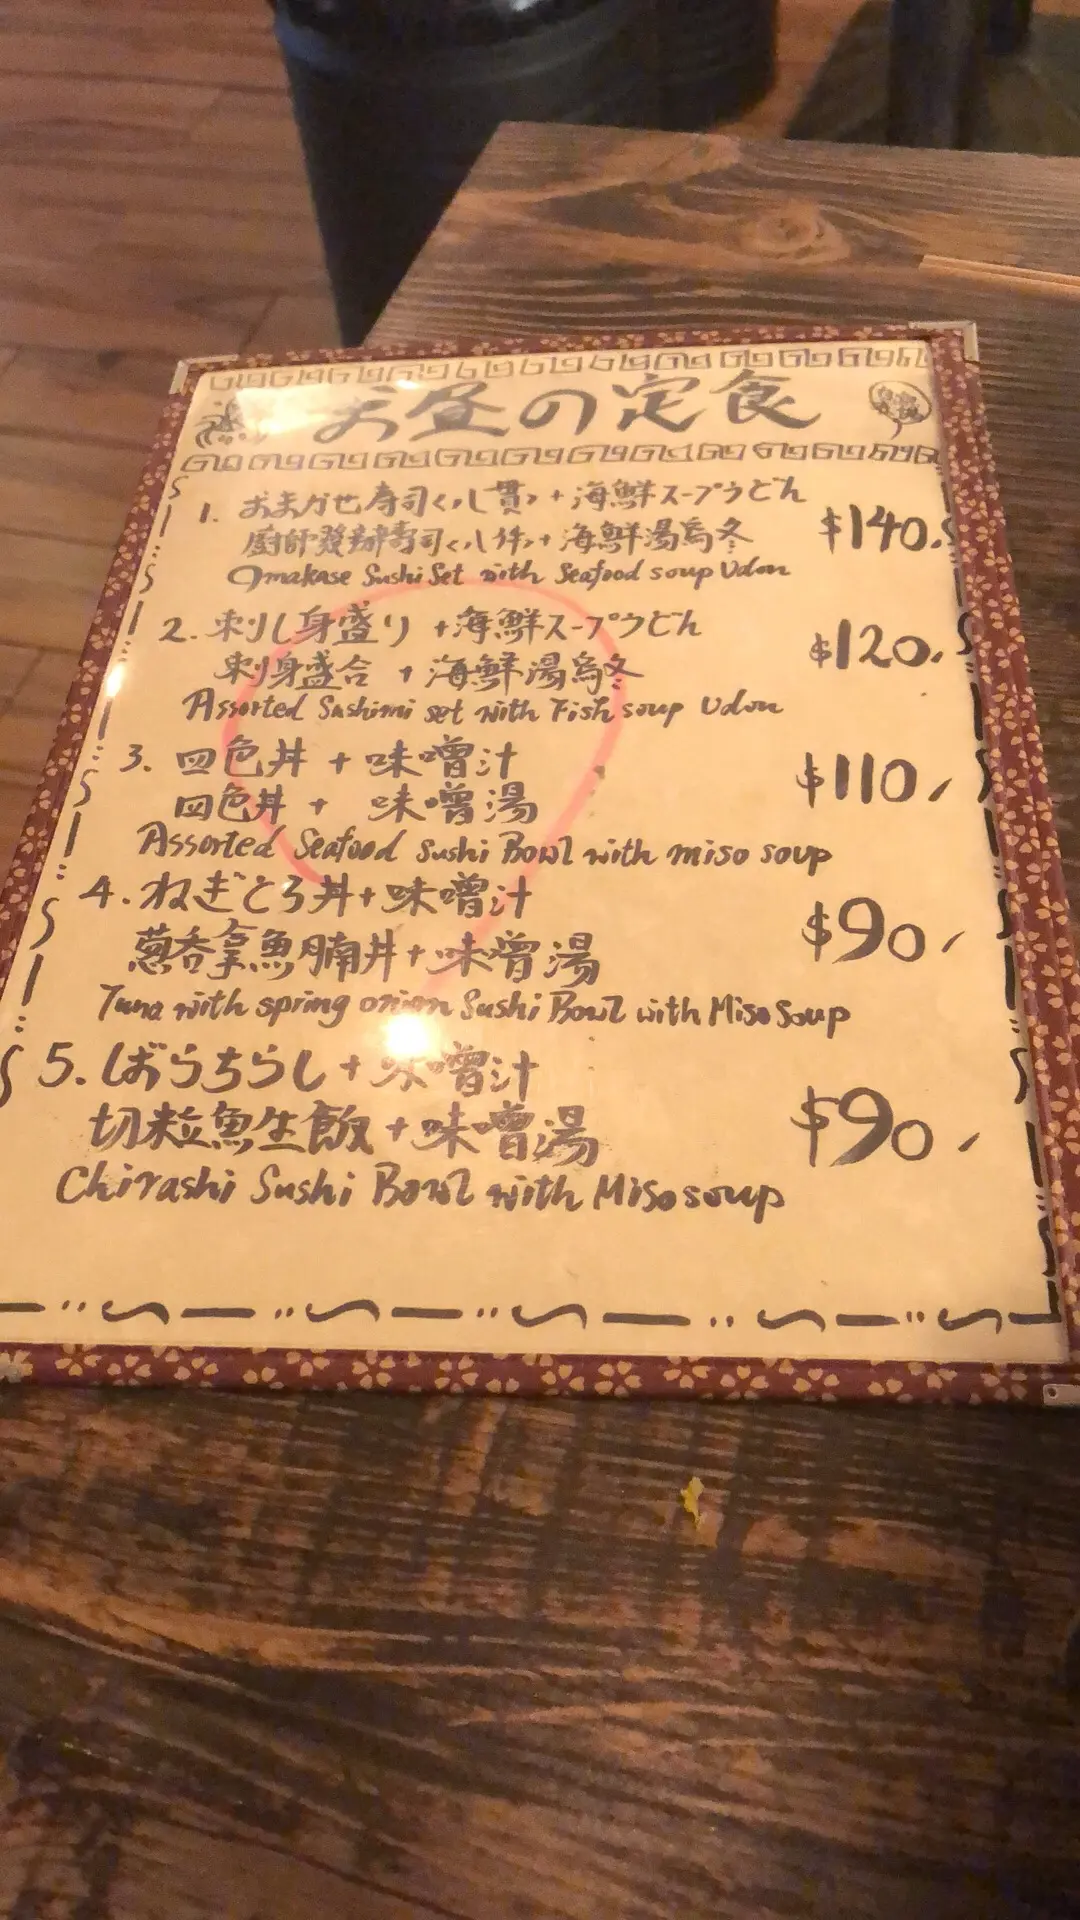 お昼の定食
1. おまかせ寿司<八貫>+海鮮スープうどん
$140.
廚師發辦壽司<八件>+海鮮湯烏冬
Omakase Sushi Set with Seafood soup Udon
2. 刺し身盛り +海鮮スープうどん
$120.
刺身盛合 +海鮮湯烏冬
Assorted Sashimi set with Fish soup Udon
3. 四色丼 + 味噌汁
$110.
四色丼 + 味噌湯
Assorted Seafood Sushi Bowl with miso soup
4. ねぎとろ丼+味噌汁
$90.
蔥吞拿魚腩丼+味噌湯
Tuna with spring onion Sushi Bowl with Miso Soup
5. ばらちらし+味噌汁
$90.
切粒魚生飯+味噌湯
Chirashi Sushi Bowl with Miso soup